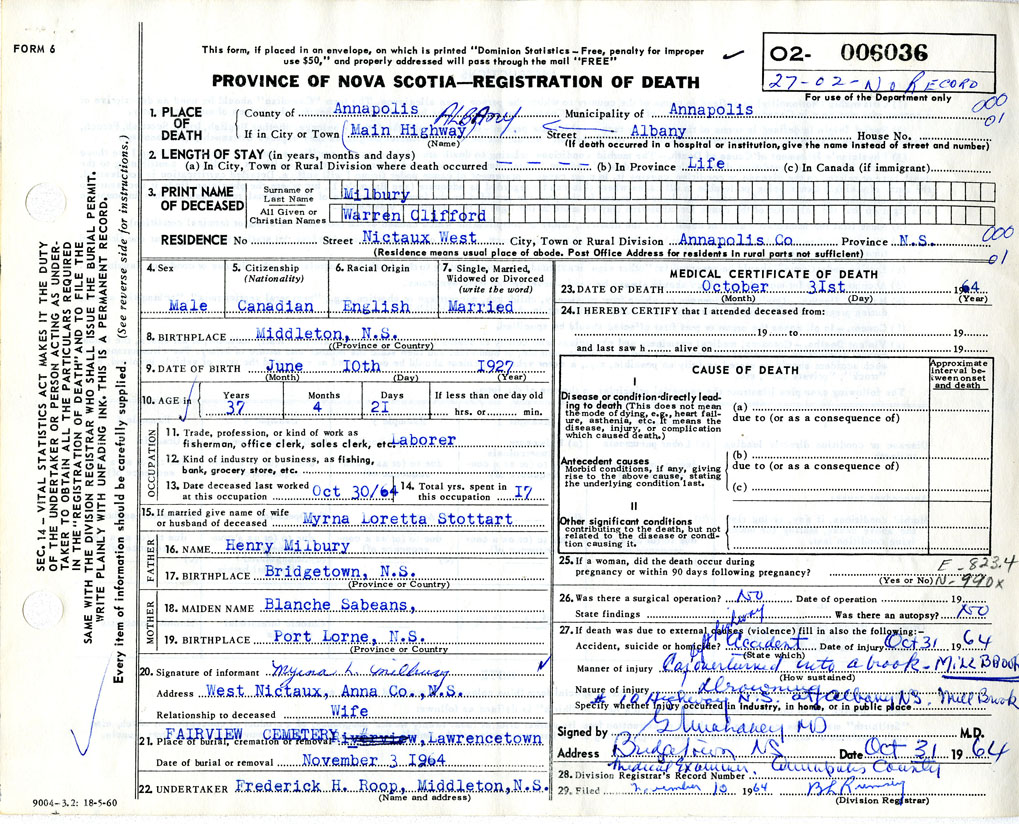 FORM 6
This form, if placed in an envelope, on which is printed "Dominion Statistics – Free, penalty for improper
use $50," and properly addressed will pass through the mail "FREE"
O2- 006036
27-02-No RECORD
For use of the Department only
PROVINCE OF NOVA SCOTIA—REGISTRATION OF DEATH
000
01
1. PLACE OF DEATH
County of Annapolis ALBANY Municipality of Annapolis
If in City or Town Main Highway Street Albany House No.
(Name) (If death occurred in a hospital or institution, give the name instead of street and number)
2. LENGTH OF STAY (in years, months and days)
(a) In City, Town or Rural Division where death occurred – – – – (b) In Province Life (c) In Canada (if immigrant)
3. PRINT NAME OF DECEASED
Surname or Last Name Milbury
All Given or Christian Names Warren Clifford
000
01
RESIDENCE No Street Nictaux West City, Town or Rural Division Annapolis Co Province N.S.
(Residence means usual place of abode. Post Office Address for residents in rural parts not sufficient)
SEC. 14 – VITAL STATISTICS ACT MAKES IT THE DUTY
OF THE UNDERTAKER OR PERSON ACTING AS UNDER-
TAKER TO OBTAIN ALL THE PARTICULARS REQUIRED
IN THE "REGISTRATION OF DEATH" AND TO FILE THE
SAME WITH THE DIVISION REGISTRAR WHO SHALL ISSUE THE BURIAL PERMIT.
WRITE PLAINLY WITH UNFADING INK. THIS IS A PERMANENT RECORD.
Every item of information should be carefully supplied. (See reverse side for instructions.)
4. Sex
Male
5. Citizenship
(Nationality)
Canadian
6. Racial Origin
English
7. Single, Married,
Widowed or Divorced
(write the word)
Married
8. BIRTHPLACE Middleton, N.S.
((Province or Country)
9. DATE OF BIRTH June IOth 1927
(Month) (Day) (Year)
10. AGE in
Years Months Days If less than one day old
37 4 2I hrs. or min.
OCCUPATION
11. Trade, profession, or kind of work as
fisherman, office clerk, sales clerk, etc. Laborer
12. Kind of industry or business, as fishing,
bank, grocery store, etc.
13. Date deceased last worked
at this occupation Oct 30/64
14. Total yrs. spent in
this occupation I7
15. If married give name of wife
or husband of deceased Myrna Loretta Stottart
FATHER
16. NAME Henry Milbury
17. BIRTHPLACE Bridgetown, N.S.
(Province or Country)
MOTHER
18. MAIDEN NAME Blanche Sabeans,
19. BIRTHPLACE Port Lorne, N.S.
(Province or Country)
20. Signature of informant Myrna L. Milbury
Address West Nictaux, Anna Co., N.S.
Relationship to deceased Wife
FAIRVIEW CEMETERY
21. Place of burial, cremation or removal , Lawrencetown
Date of burial or removal November 3 I964
22. UNDERTAKER Frederick H. Roop, Middleton, N.S.
(Name and address)
9004–3.2: 18-5-60
MEDICAL CERTIFICATE OF DEATH
23. DATE OF DEATH October 3Ist 1964
(Month) (Day) (Year)
24. I HEREBY CERTIFY that I attended deceased from:
19 to 19
and last saw h alive on 19
CAUSE OF DEATH
Approximate
Interval be-
tween onset
and death
I
Disease or condition directly lead-
ing to death (This does not mean
the mode of dying, e.g., heart fail-
ure, asthenia, etc. It means the
disease, injury, or complication
which caused death.)
(a)
due to (or as a consequence of)
Antecedent causes
Morbid conditions, if any, giving
rise to the above cause, stating
the underlying condition last.
(b)
due to (or as a consequence of)
(c)
II
Other significant conditions
contributing to the death, but not
related to the disease or condi-
tion causing it.
25. If a woman, did the death occur during
pregnancy or within 90 days following pregnancy?
(Yes or No)
E-823.4
N-990X
26. Was there a surgical operation? No Date of operation 19
State findings Was there an autopsy? No
highway
27. If death was due to external causes (violence) fill in also the following:–
Accident, suicide or homicide? Accident Date of injury Oct 31 1964
(State which)
Manner of injury Car overturned into a brook - MILL BROOK
(How sustained)
Nature of injury Drowning
# 10 Highway N.S. at Albany NS. Mill Brook
Specify whether injury occurred in industry, in home, or in public place
Signed by M.D.
Address Bridgetown NS Date Oct 31 1964
Medical Examiner Annapolis County
28. Division Registrar's Record Number
29. Filed November 10 1964
(Division Registrar)